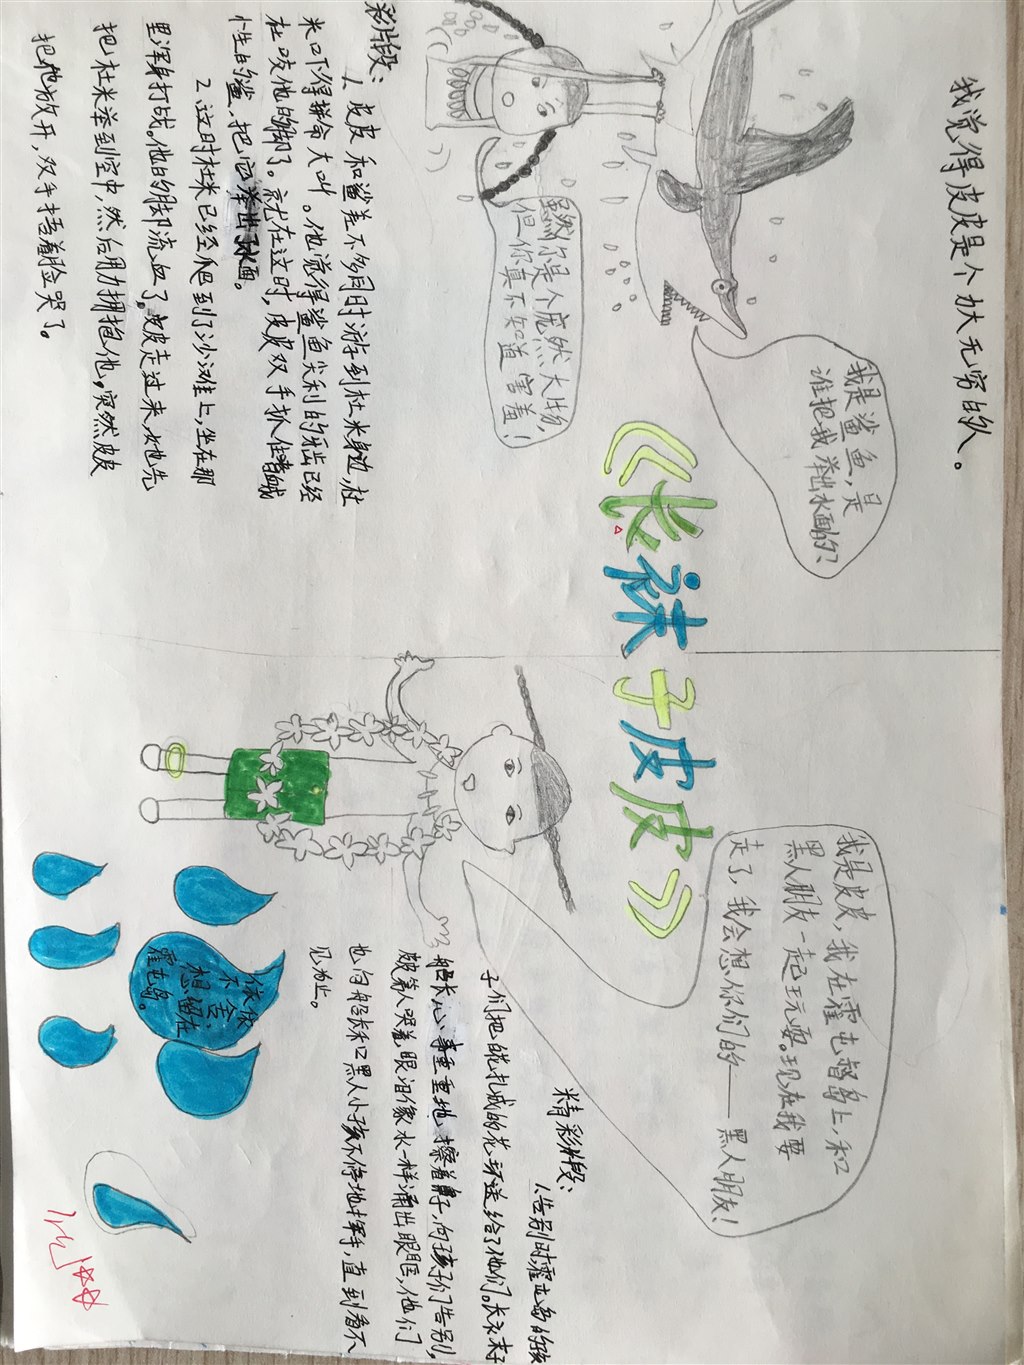 我觉得皮皮是个力大无穷的人。
我是鲨鱼，是
谁把我举出水面的？
虽然你是个庞然大物，
但你真不知道害羞！
彩片段：
1、皮皮和鲨差不多同时游到杜米身边，杜
米吓得拼命大叫。他觉得鲨鱼尖利的牙齿已经
在咬他的脚了。就在这时，皮皮双手抓住
性的鲨，把它举出了水面。
2、这时杜米已经爬到了沙滩上，坐在那
里浑身打战。他的脚流血了。皮皮走过来，她先
把杜米举到空中，然后用力拥抱他。突然皮皮
把他放开，双手捂着脸哭了。
《长袜子皮皮》
我是皮皮，我在霍屯督岛上，和
黑人朋友一起玩耍。现在我要
走了，我会想你们的——黑人朋友！
精彩片段：
1、告别时，霍屯岛的孩
子们把白花扎成的花环送给了他们。长袜子
船长心事重重地擦着鼻子，向孩子们告别，
皮皮等人哭着，眼泪像水一样涌出眼眶，他们
也向船长和黑人小孩不停地挥手，直到看不
见为止。
依依
不舍，
想留在
霍屯岛。